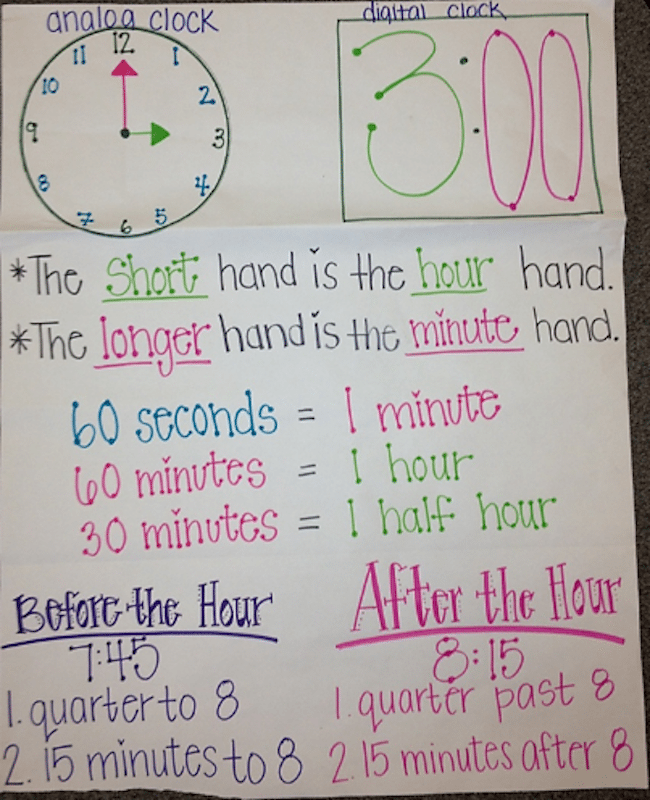 analog clock
digital clock
12
11 1
10 2
9 3
8 4
7 6 5
3:00
*The short hand is the hour hand.
*The longer hand is the minute hand.
60 seconds = 1 minute
60 minutes = 1 hour
30 minutes = 1 half hour
Before the Hour
7:45
1. quarter to 8
2. 15 minutes to 8
After the Hour
8:15
1. quarter past 8
2. 15 minutes after 8